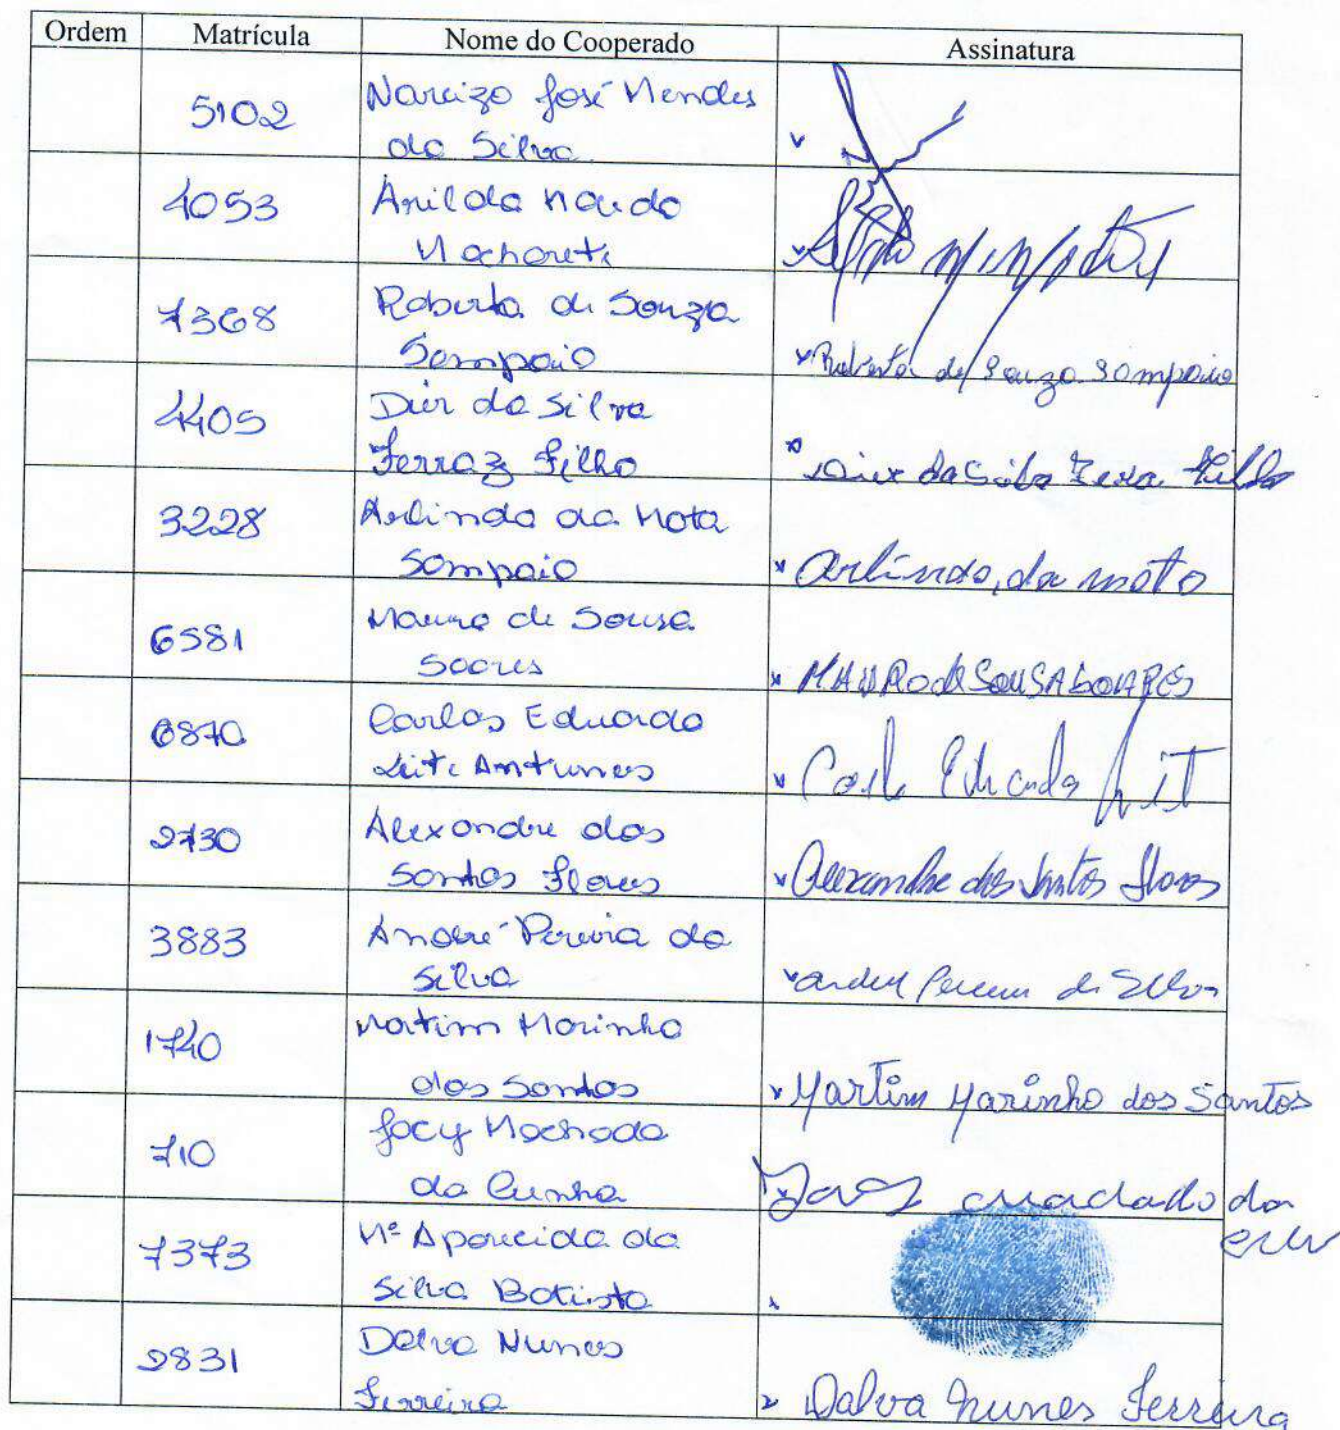 Ordem Matrícula Nome do Cooperado Assinatura
5102 Narcizo José Mendes
da Silva
4053 Arilda
Macharete
7368 Roberta de Souza
Sampaio
Roberta de Souza Sampaio
4405 Dier da Silva
Ferraz Filho
3228 Arlindo da Mota
Sampaio
Arlindo, da moto
6581 Mauro de Sousa
Soares
MAURO de SOUSA SOARES
6870 Carlos Eduardo
Leite Antunes
2730 Alexandre dos
Santos Flores
Alexandre dos Santos Flores
3883 André Pereira da
Silva
1740 Martim Marinho
dos Santos
Martim Marinho dos Santos
710 Jocy Machado
da Cunha
7373 Mª Aparecida da
Silva Batista
2831 Dalva Nunes
Ferreira
Dalva Nunes Ferreira